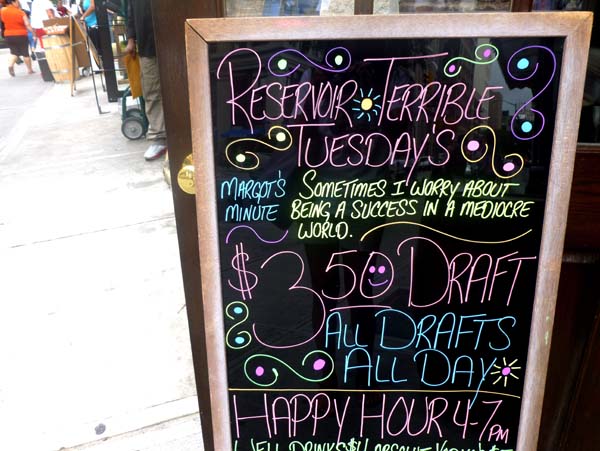 RESERVOIR TERRIBLE
TUESDAY'S
MARGOT'S MINUTE
SOMETIMES I WORRY ABOUT
BEING A SUCCESS IN A MEDIOCRE
WORLD.
$3.50 DRAFT
ALL DRAFTS
ALL DAY
HAPPY HOUR 4-7PM
WELL DRINKS $4 ABSOLUT